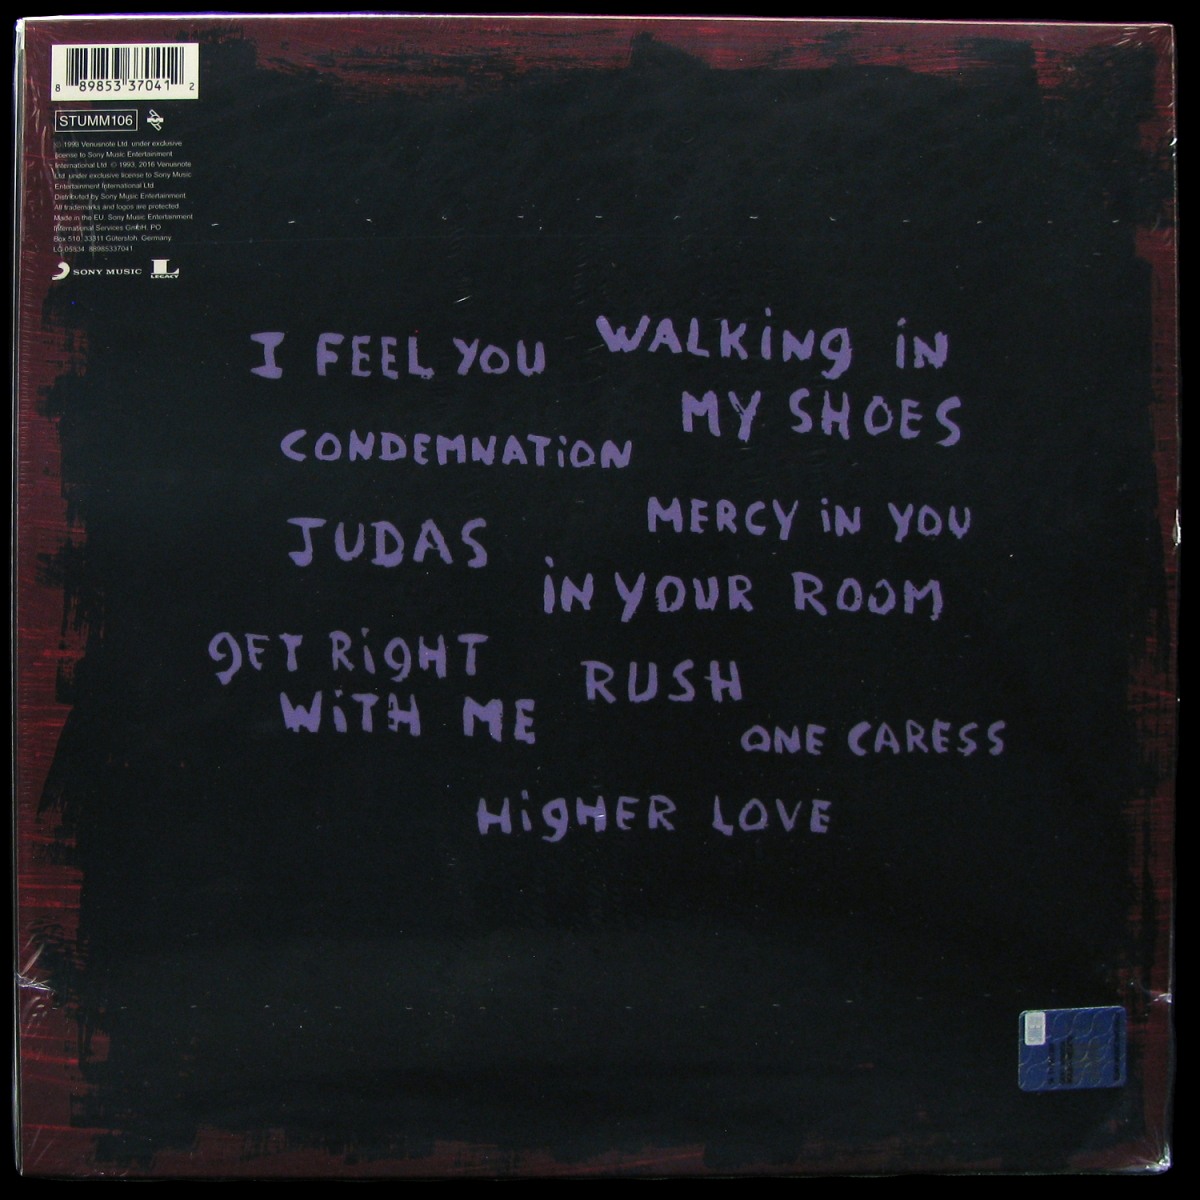 8 89853 37041 2
STUMM106
℗ 1993 Venusnote Ltd. under exclusive
license to Sony Music Entertainment
International Ltd. © 1993, 2016 Venusnote
Ltd. under exclusive license to Sony Music
Entertainment International Ltd.
Distributed by Sony Music Entertainment.
All trademarks and logos are protected.
Made in the EU. Sony Music Entertainment
International Services GmbH. PO
Box 510, 33311 Gütersloh, Germany.
LC 05834 88985337041
SONY MUSIC
LEGACY
I FEEL YOU
WALKiNg iN
MY SHOES
CONDEMNATiON
MERCY iN YOU
JUDAS
iN YOUR ROOM
gET RigHT
WiTH ME
RUSH
ONE CARESS
HigHER LOVE